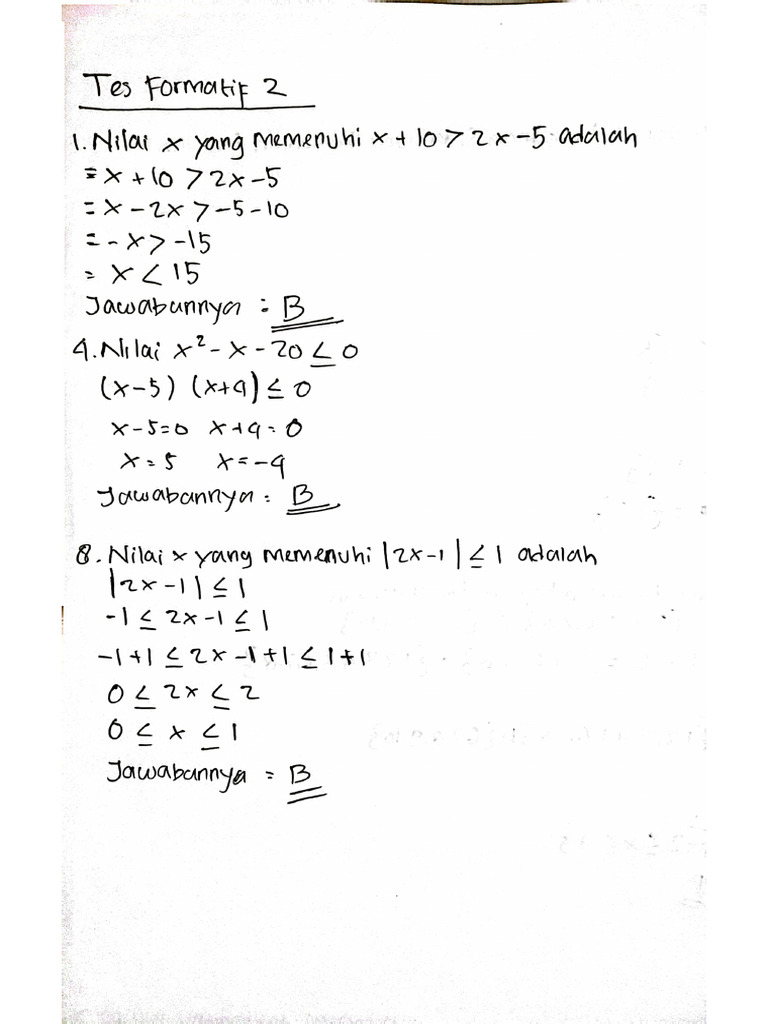 Tes Formatif 2
1. Nilai x yang memenuhi x + 10 > 2x - 5 adalah
= x + 10 > 2x - 5
= x - 2x > -5 - 10
= - x > -15
= x < 15
Jawabannya = B
4. Nilai x² - x - 20 ≤ 0
(x - 5) (x + 4) ≤ 0
x - 5 = 0 x + 4 = 0
x = 5 x = -4
Jawabannya = B
8. Nilai x yang memenuhi |2x - 1| ≤ 1 adalah
|2x - 1| ≤ 1
-1 ≤ 2x - 1 ≤ 1
-1 + 1 ≤ 2x - 1 + 1 ≤ 1 + 1
0 ≤ 2x ≤ 2
0 ≤ x ≤ 1
Jawabannya = B